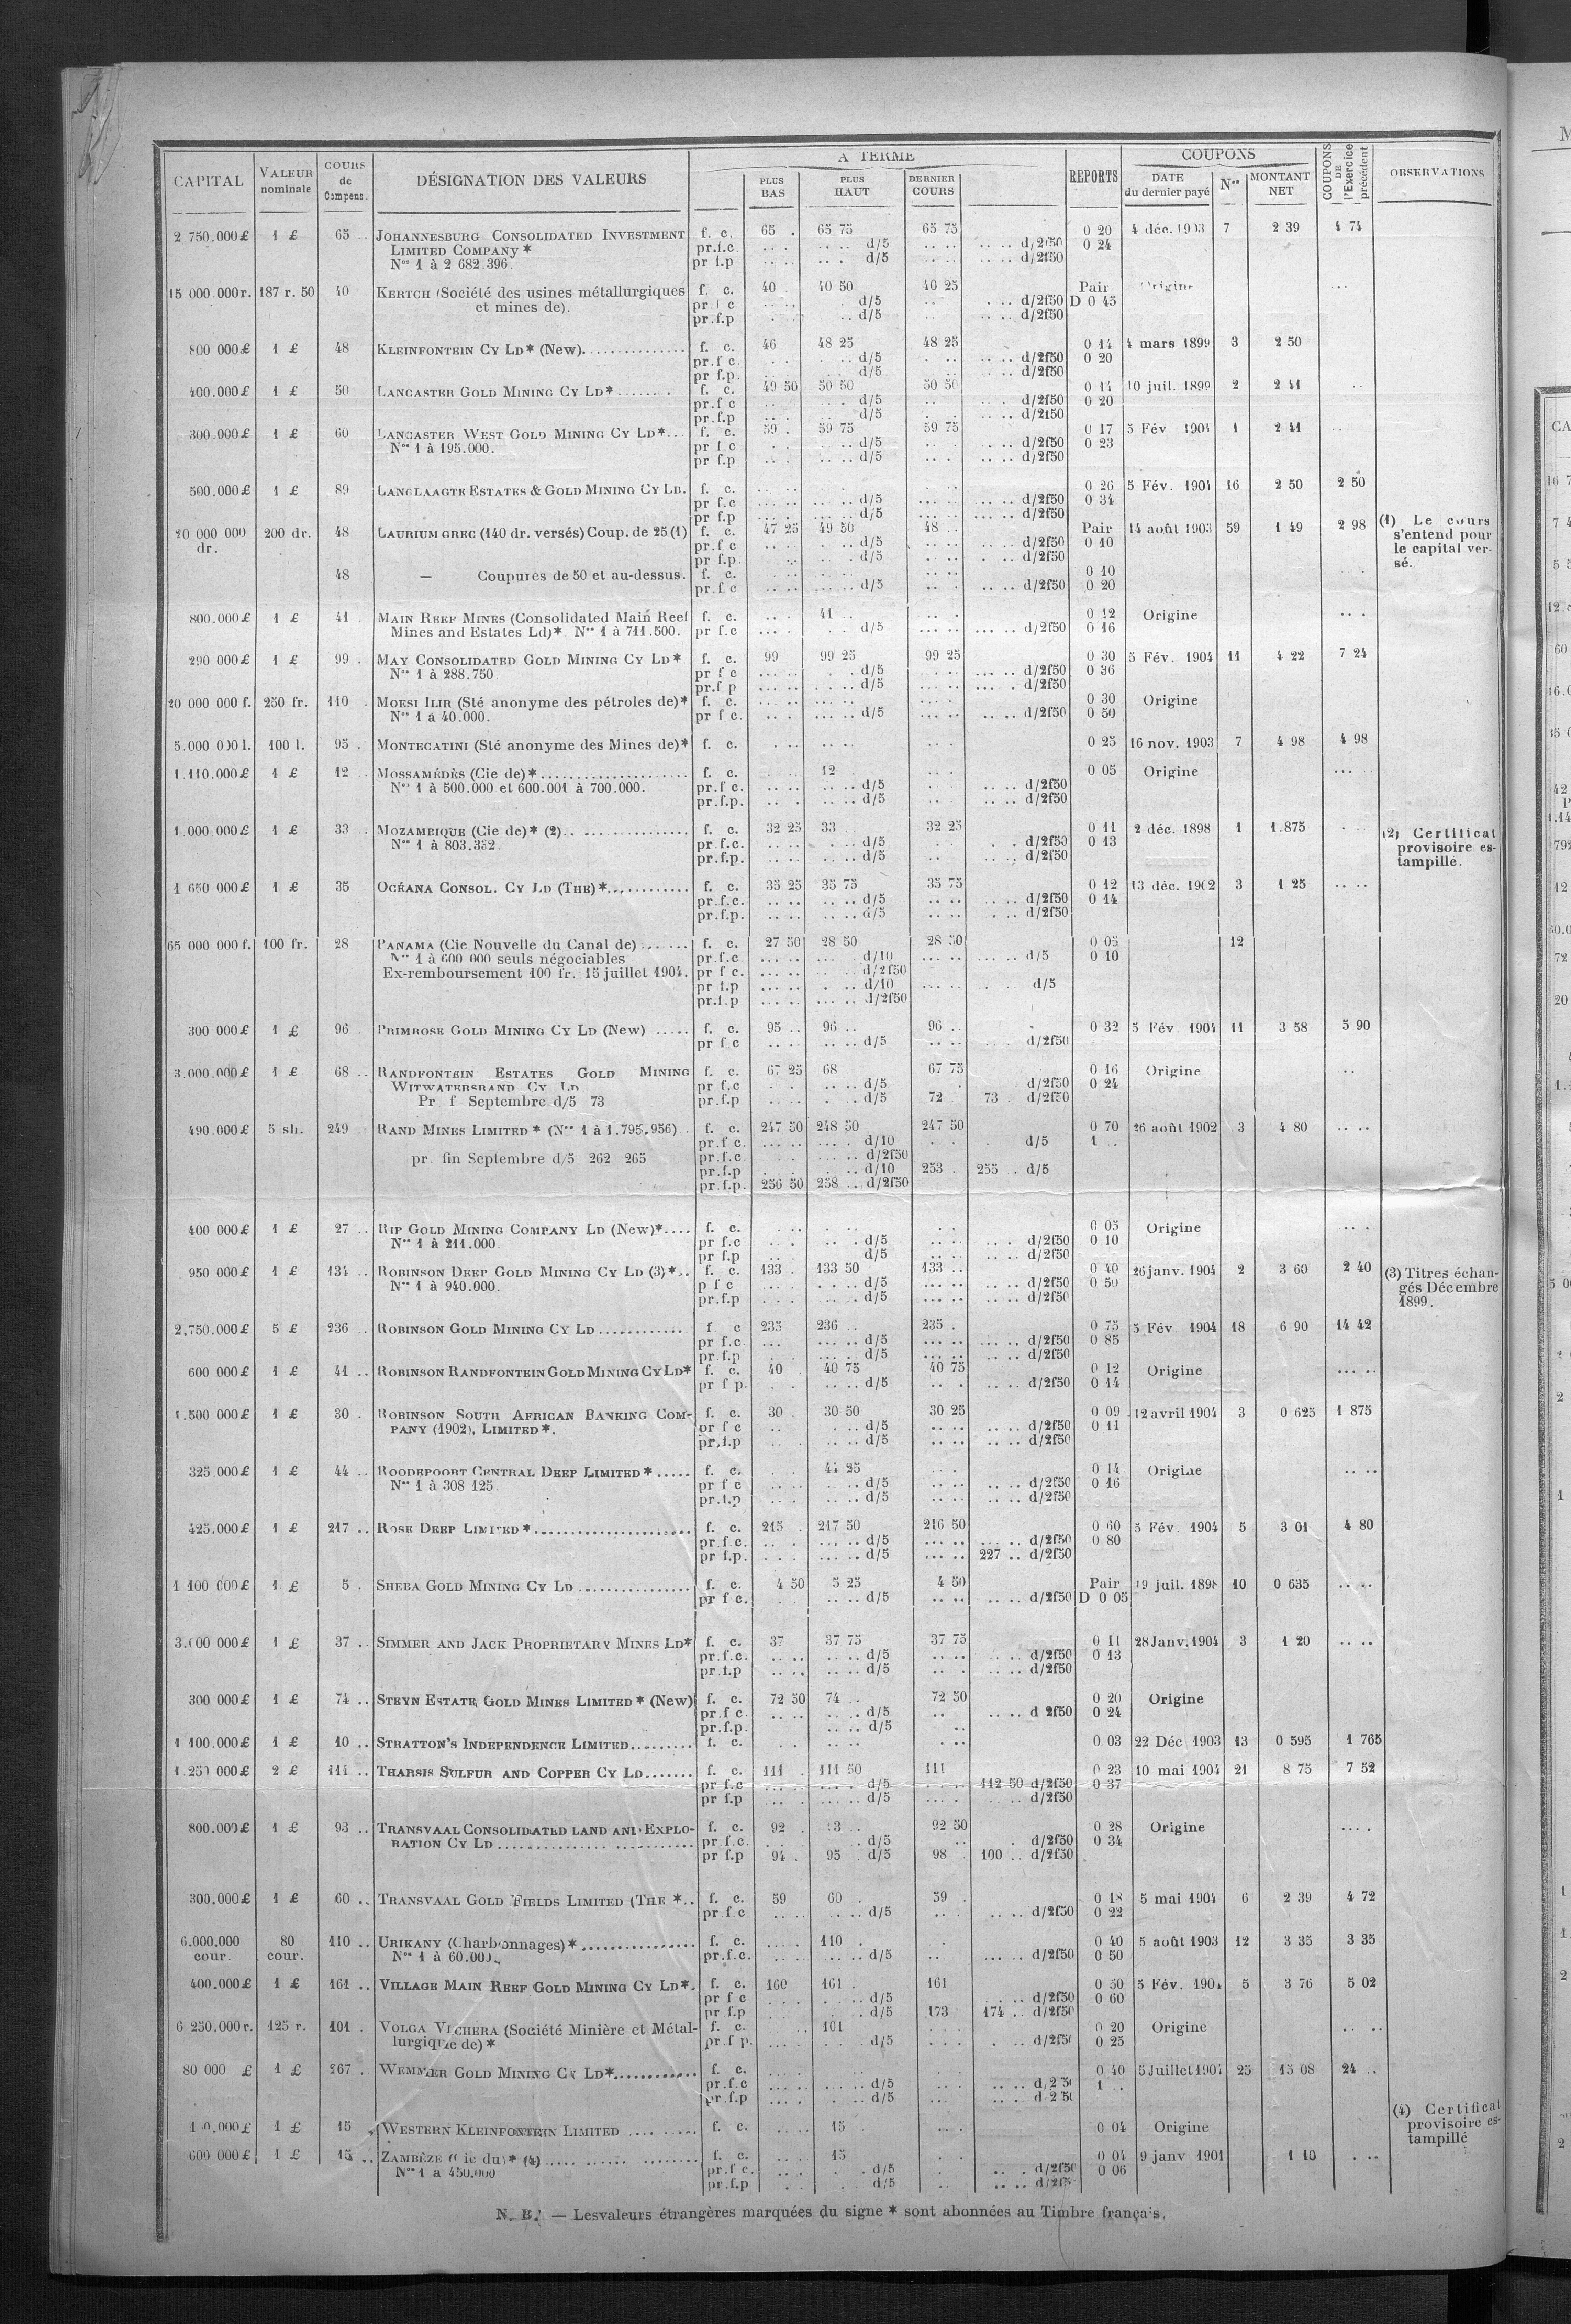 CAPITAL | VALEUR nominale | COURS de Compens. | DÉSIGNATION DES VALEURS | A TERME | PLUS BAS | PLUS HAUT | DERNIER COURS | REPORTS | COUPONS | DATE du dernier payé | Nos | MONTANT NET | COUPONS DE l'Exercice précédent | OBSERVATIONS
2 750.000 £ 1 £ 65 .. JOHANNESBURG CONSOLIDATED INVESTMENT f. c. 65 . 65 75 65 75 0 20 4 déc. 1903 7 2 39 4 74
LIMITED COMPANY * pr.f.c. d/5 d/2f50 0 24
Nos 1 à 2 682.396. pr f.p d/5 d/2f50
15 000.000 r. 187 r. 50 40 KERTCH (Société des usines métallurgiques f. c. 40 40 50 40 25 Pair Origine
et mines de). pr f c d/5 d/2f50 D 0 45
pr.f.p d/5 d/2f50
800 000 £ 1 £ 48 KLEINFONTEIN CY LD * (New) f. c. 46 48 25 48 25 0 14 4 mars 1899 3 2 50
pr.f c d/5 d/2f50 0 20
pr f.p. d/5 d/2f50
400.000 £ 1 £ 50 LANCASTER GOLD MINING CY LD * f. c. 49 50 50 50 50 50 0 14 10 juil. 1899 2 2 41
pr.f c d/5 d/2f50 0 20
pr.f.p d/5 d/2f50
300.000 £ 1 £ 60 LANCASTER WEST GOLD MINING CY LD * f. c. 59 . 59 75 59 75 0 17 5 Fév 1904 1 2 41
Nos 1 à 195.000. pr f c d/5 d/2f50 0 23
pr f.p d/5 d/2f50
500.000 £ 1 £ 89 LANGLAAGTE ESTATES & GOLD MINING CY LD. f. c. 0 26 5 Fév. 1904 16 2 50 2 50
pr f.c d/5 d/2f50 0 34
pr f.p d/5 d/2f50
20 000 000 dr. 200 dr. 48 LAURIUM GREC (140 dr. versés) Coup. de 25 (1) f. c. 47 25 49 50 48 .. Pair 14 août 1903 59 1 49 2 98 (1) Le cours s'entend pour le capital versé.
pr.f c d/5 d/2f50 0 10
pr f.p. d/5 d/2f50
48 — Coupures de 50 et au-dessus. f. c. 0 10
pr.f c d/5 d/2f50 0 20
800.000 £ 1 £ 41 MAIN REEF MINES (Consolidated Main Reef f. c. 41 0 12 Origine
Mines and Estates Ld) *. Nos 1 à 711.500. pr f.c d/5 d/2f50 0 16
290 000 £ 1 £ 99 . MAY CONSOLIDATED GOLD MINING CY LD * f. c. 99 99 25 99 25 0 30 5 Fév. 1904 11 4 22 7 24
Nos 1 à 288.750 pr f c d/5 d/2f50 0 36
pr.f p d/5 d/2f50
20 000 000 f. 250 fr. 110 . MOESI ILIR (Sté anonyme des pétroles de) * f. c. 0 30 Origine
Nos 1 à 40.000. pr f c. d/5 d/2f50 0 50
5.000 000 l. 100 l. 95 . MONTECATINI (Sté anonyme des Mines de) * f. c. 0 25 16 nov. 1903 7 4 98 4 98
1.110.000 £ 1 £ 12 .. MOSSAMÉDÈS (Cie de) * f. c. 12 0 05 Origine
Nos 1 à 500.000 et 600.001 à 700.000. pr.f c. d/5 d/2f50
pr.f.p. d/5 d/2f50
1.000.000 £ 1 £ 33 .. MOZAMBIQUE (Cie de) * (2) f. c. 32 25 33 32 25 0 11 2 déc. 1898 1 1.875 (2) Certificat provisoire estampillé.
Nos 1 à 803.352 pr.f.c. d/5 d/2f50 0 13
pr.f.p. d/5 d/2f50
1 650 000 £ 1 £ 35 OCÉANA CONSOL. CY LD (THE) * f. c. 35 25 35 75 35 75 0 12 13 déc. 1902 3 1 25
pr.f.c. d/5 d/2f50 0 14
pr.f.p. d/5 d/2f50
65 000 000 f. 100 fr. 28 PANAMA (Cie Nouvelle du Canal de) f. c. 27 50 28 50 28 50 0 05 12
Nos 1 à 600 000 seuls négociables pr.f.c d/10 d/5 0 10
Ex-remboursement 100 fr. 15 juillet 1904. pr f c. d/2f50
pr f.p d/10 d/5
pr.f.p d/2f50
300 000 £ 1 £ 96 PRIMROSE GOLD MINING CY LD (New) f. c. 95 .. 96 .. 96 .. 0 32 5 Fév. 1904 11 3 58 5 90
pr f c d/5 d/2f50
3.000.000 £ 1 £ 68 .. RANDFONTEIN ESTATES GOLD MINING f. c. 67 25 68 67 75 0 16 Origine
WITWATERSRAND CY LD pr f.c d/5 d/2f50 0 24
Pr f Septembre d/5 73 pr.f.p d/5 72 73 . d/2f50
490.000 £ 5 sh. 249 RAND MINES LIMITED * (Nos 1 à 1.795.956) f. c. 247 50 248 50 247 50 0 70 26 août 1902 3 4 80
pr.f c. d/10 d/5 1 ..
pr. fin Septembre d/5 262 265 pr.f.c. d/2f50
pr.f.p d/10 253 . 255 . d/5
pr.f.p. 256 50 258 .. d/2f50
400 000 £ 1 £ 27 .. RIP GOLD MINING COMPANY LD (New) * f. c. 0 05 Origine
Nos 1 à 211.000 pr f.c d/5 d/2f50 0 10
pr f.p d/5 d/2f50
950 000 £ 1 £ 134 .. ROBINSON DEEP GOLD MINING CY LD (3) * f. c. 133 . 133 50 133 .. 0 40 26 janv. 1904 2 3 60 2 40 (3) Titres échangés Décembre 1899.
Nos 1 à 940.000. p f c d/5 d/2f50 0 50
pr.f.p d/5 d/2f50
2.750.000 £ 5 £ 236 .. ROBINSON GOLD MINING CY LD f c 235 236 .. 235 . 0 75 5 Fév 1904 18 6 90 14 42
pr f.c d/5 d/2f50 0 85
pr.f.p d/5 d/2f50
600 000 £ 1 £ 41 .. ROBINSON RANDFONTEIN GOLD MINING CY LD * f. c. 40 40 75 40 75 0 12 Origine
pr f p. d/5 d/2f50 0 14
1.500 000 £ 1 £ 30 . ROBINSON SOUTH AFRICAN BANKING COM- f. c. 30 . 30 50 30 25 0 09 12 avril 1904 3 0 625 1 875
PANY (1902), LIMITED *. pr f c d/5 d/2f50 0 11
pr.f.p d/5 d/2f50
325.000 £ 1 £ 44 .. ROODEPOORT CENTRAL DEEP LIMITED * f. c. 44 25 0 14 Origine
Nos 1 à 308 125. pr f c d/5 d/2f50 0 16
pr.f.p d/5 d/2f50
425.000 £ 1 £ 217 .. ROSE DEEP LIMITED * f. c. 215 . 217 50 216 50 0 60 5 Fév. 1904 5 3 01 4 80
pr f.c. d/5 d/2f50 0 80
pr f.p. d/5 227 .. d/2f50
1 100 000 £ 1 £ 5 . SHEBA GOLD MINING CY LD f. c. 4 50 5 25 4 50 Pair 19 juil. 1898 10 0 635
pr f c. d/5 d/2f50 D 0 05
3.000 000 £ 1 £ 37 .. SIMMER AND JACK PROPRIETARY MINES LD * f. c. 37 37 75 37 75 0 11 28 Janv. 1904 3 1 20
pr.f.c. d/5 d/2f50 0 13
pr f.p d/5 d/2f50
300 000 £ 1 £ 74 .. STEYN ESTATE GOLD MINES LIMITED * (New) f. c. 72 50 74 .. 72 50 0 20 Origine
pr.f c d/5 d 2f50 0 24
pr.f.p. d/5
1 100.000 £ 1 £ 10 .. STRATTON'S INDEPENDENCE LIMITED f. c. 0.03 22 Déc 1903 13 0 595 1 765
1.250 000 £ 2 £ 111 .. THARSIS SULFUR AND COPPER CY LD f. c. 111 . 111 50 111 0 23 10 mai 1904 21 8 75 7 52
pr f.c d/5 112 50 d/2f50 0 37
pr f.p d/5 d/2f50
800.000 £ 1 £ 93 .. TRANSVAAL CONSOLIDATED LAND AND EXPLO- f. c. 92 . 92 50 0 28 Origine
RATION CY LD pr f.c. d/5 d/2f50 0 34
pr f.p 94 . 95 . d/5 98 . 100 .. d/2f50
300.000 £ 1 £ 60 .. TRANSVAAL GOLD FIELDS LIMITED (THE * f. c. 59 60 . 59 . 0 18 5 mai 1904 6 2 39 4 72
pr.f.c d/5 d/2f50 0 22
6.000.000 cour. 80 cour. 110 .. URIKANY (Charbonnages) * f. c. 110 . 0 40 5 août 1903 12 3 35 3 35
Nos 1 à 60.000. pr.f.c. d/5 d/2f50 0 50
400.000 £ 1 £ 161 .. VILLAGE MAIN REEF GOLD MINING CY LD *. f. c. 160 161 . 161 0 50 5 Fév. 1904 5 3 76 5 02
pr f c d/5 d/2f50 0 60
pr f.p d/5 173 174 .. d/2f50
6 250.000 r. 125 r. 101 . VOLGA VICHERA (Société Minière et Métal- f. c. 101 0 20 Origine
lurgique de) * pr.f p. d/5 d/2f50 0 25
80 000 £ 1 £ 267 . WEMMER GOLD MINING CY LD * f. c. 0 40 5 Juillet 1904 25 15 08 24 ..
pr.f.c d/5 1 ..
pr.f.p d/5
1 £ 15 WESTERN KLEINFONTEIN LIMITED f. c. 15 0 04 Origine (4) Certificat provisoire estampillé
600 000 £ 1 £ 15 .. ZAMBÈZE (Cie du) * (4) f. c. 15 0 04 9 janv 1901 1 10
Nos 1 à 450.000 pr.f c. d/5 d/2f50 0 06
pr.f.p d/5
N. B. — Les valeurs étrangères marquées du signe * sont abonnées au Timbre français.